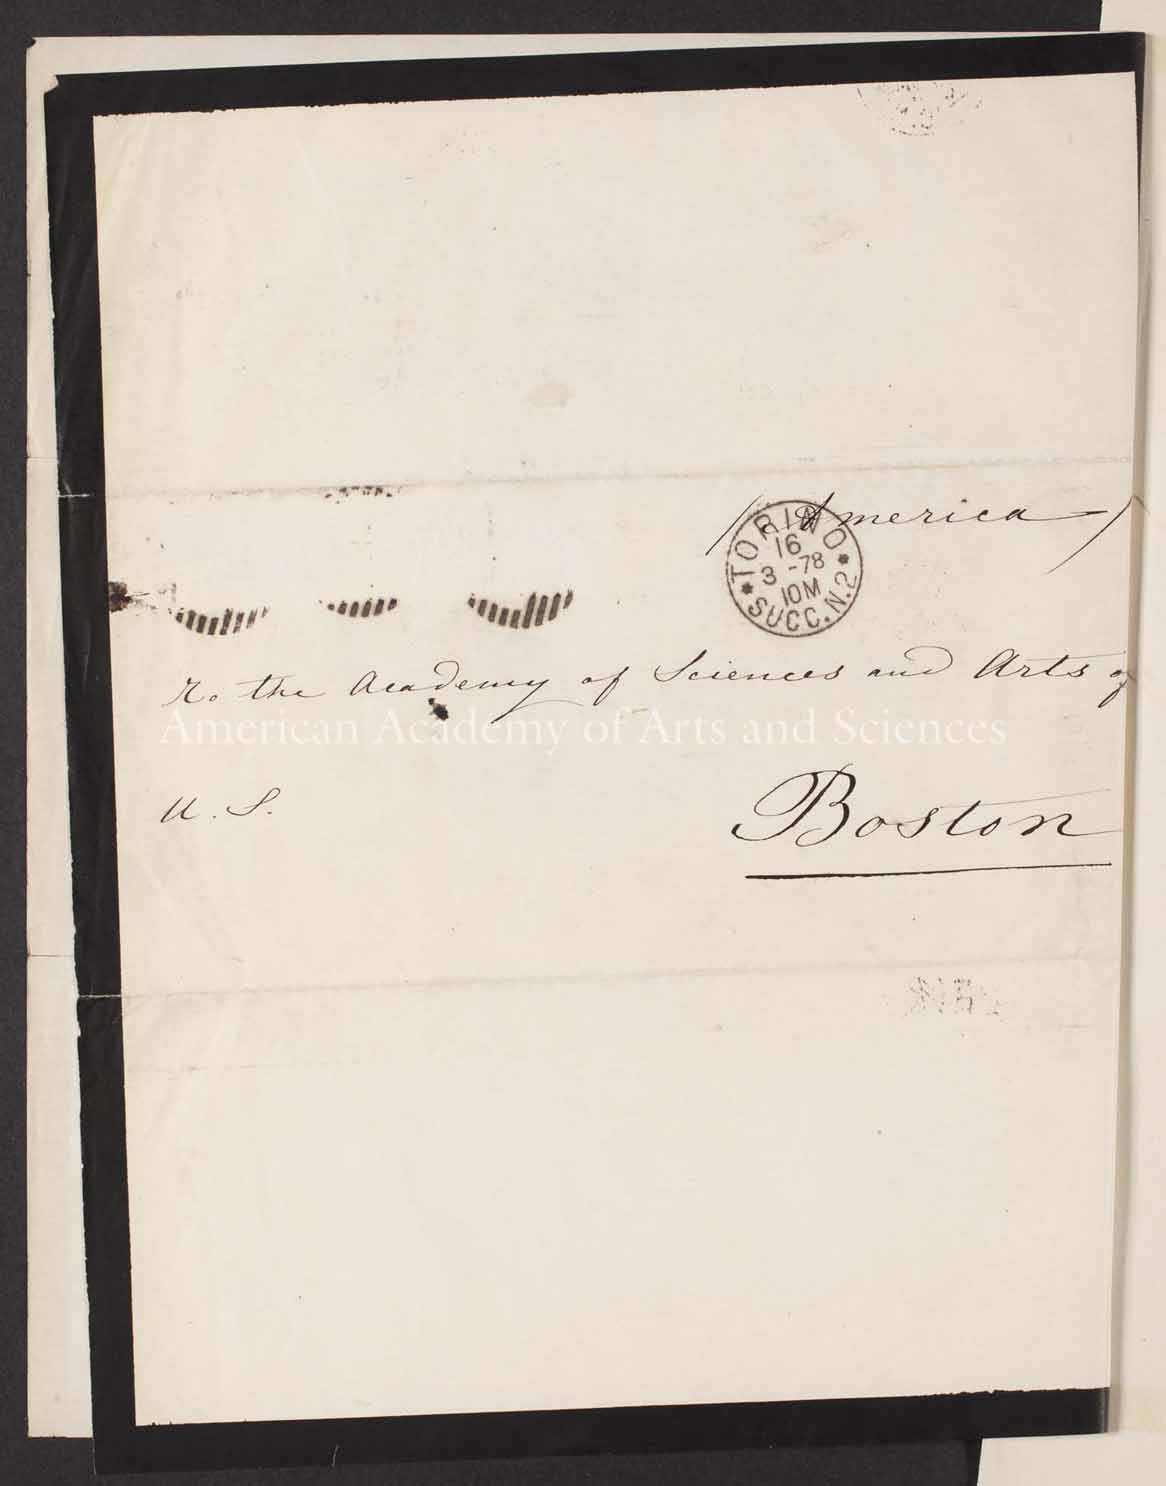 (America)
TORINO
16
3 -78
10M
SUCC. N. 2
To the Academy of Sciences and Arts of
American Academy of Arts and Sciences
U. S.
Boston